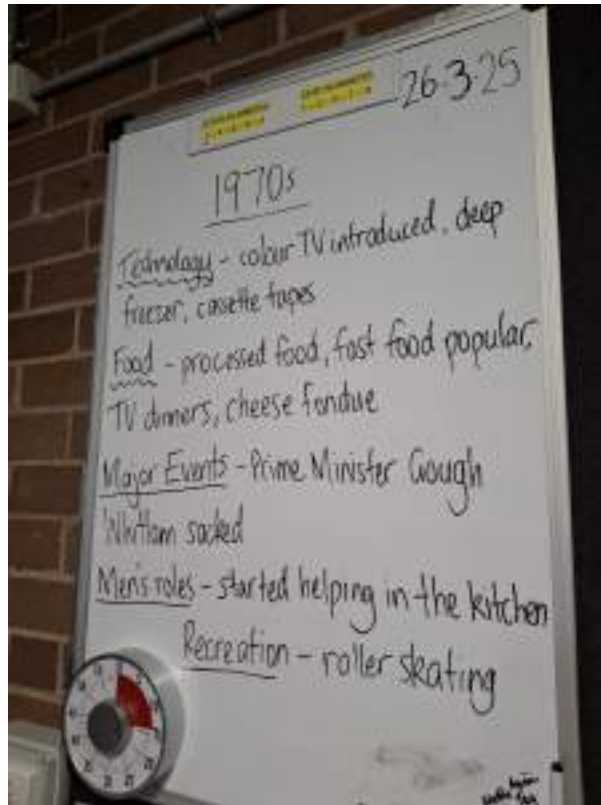 26.3.25
1970s
Technology - colour TV introduced, deep
freezer, cassette tapes
Food - processed food, fast food popular,
TV dinners, cheese fondue
Major Events - Prime Minister Gough
Whitlam sacked
Men's roles - started helping in the kitchen
Recreation - roller skating